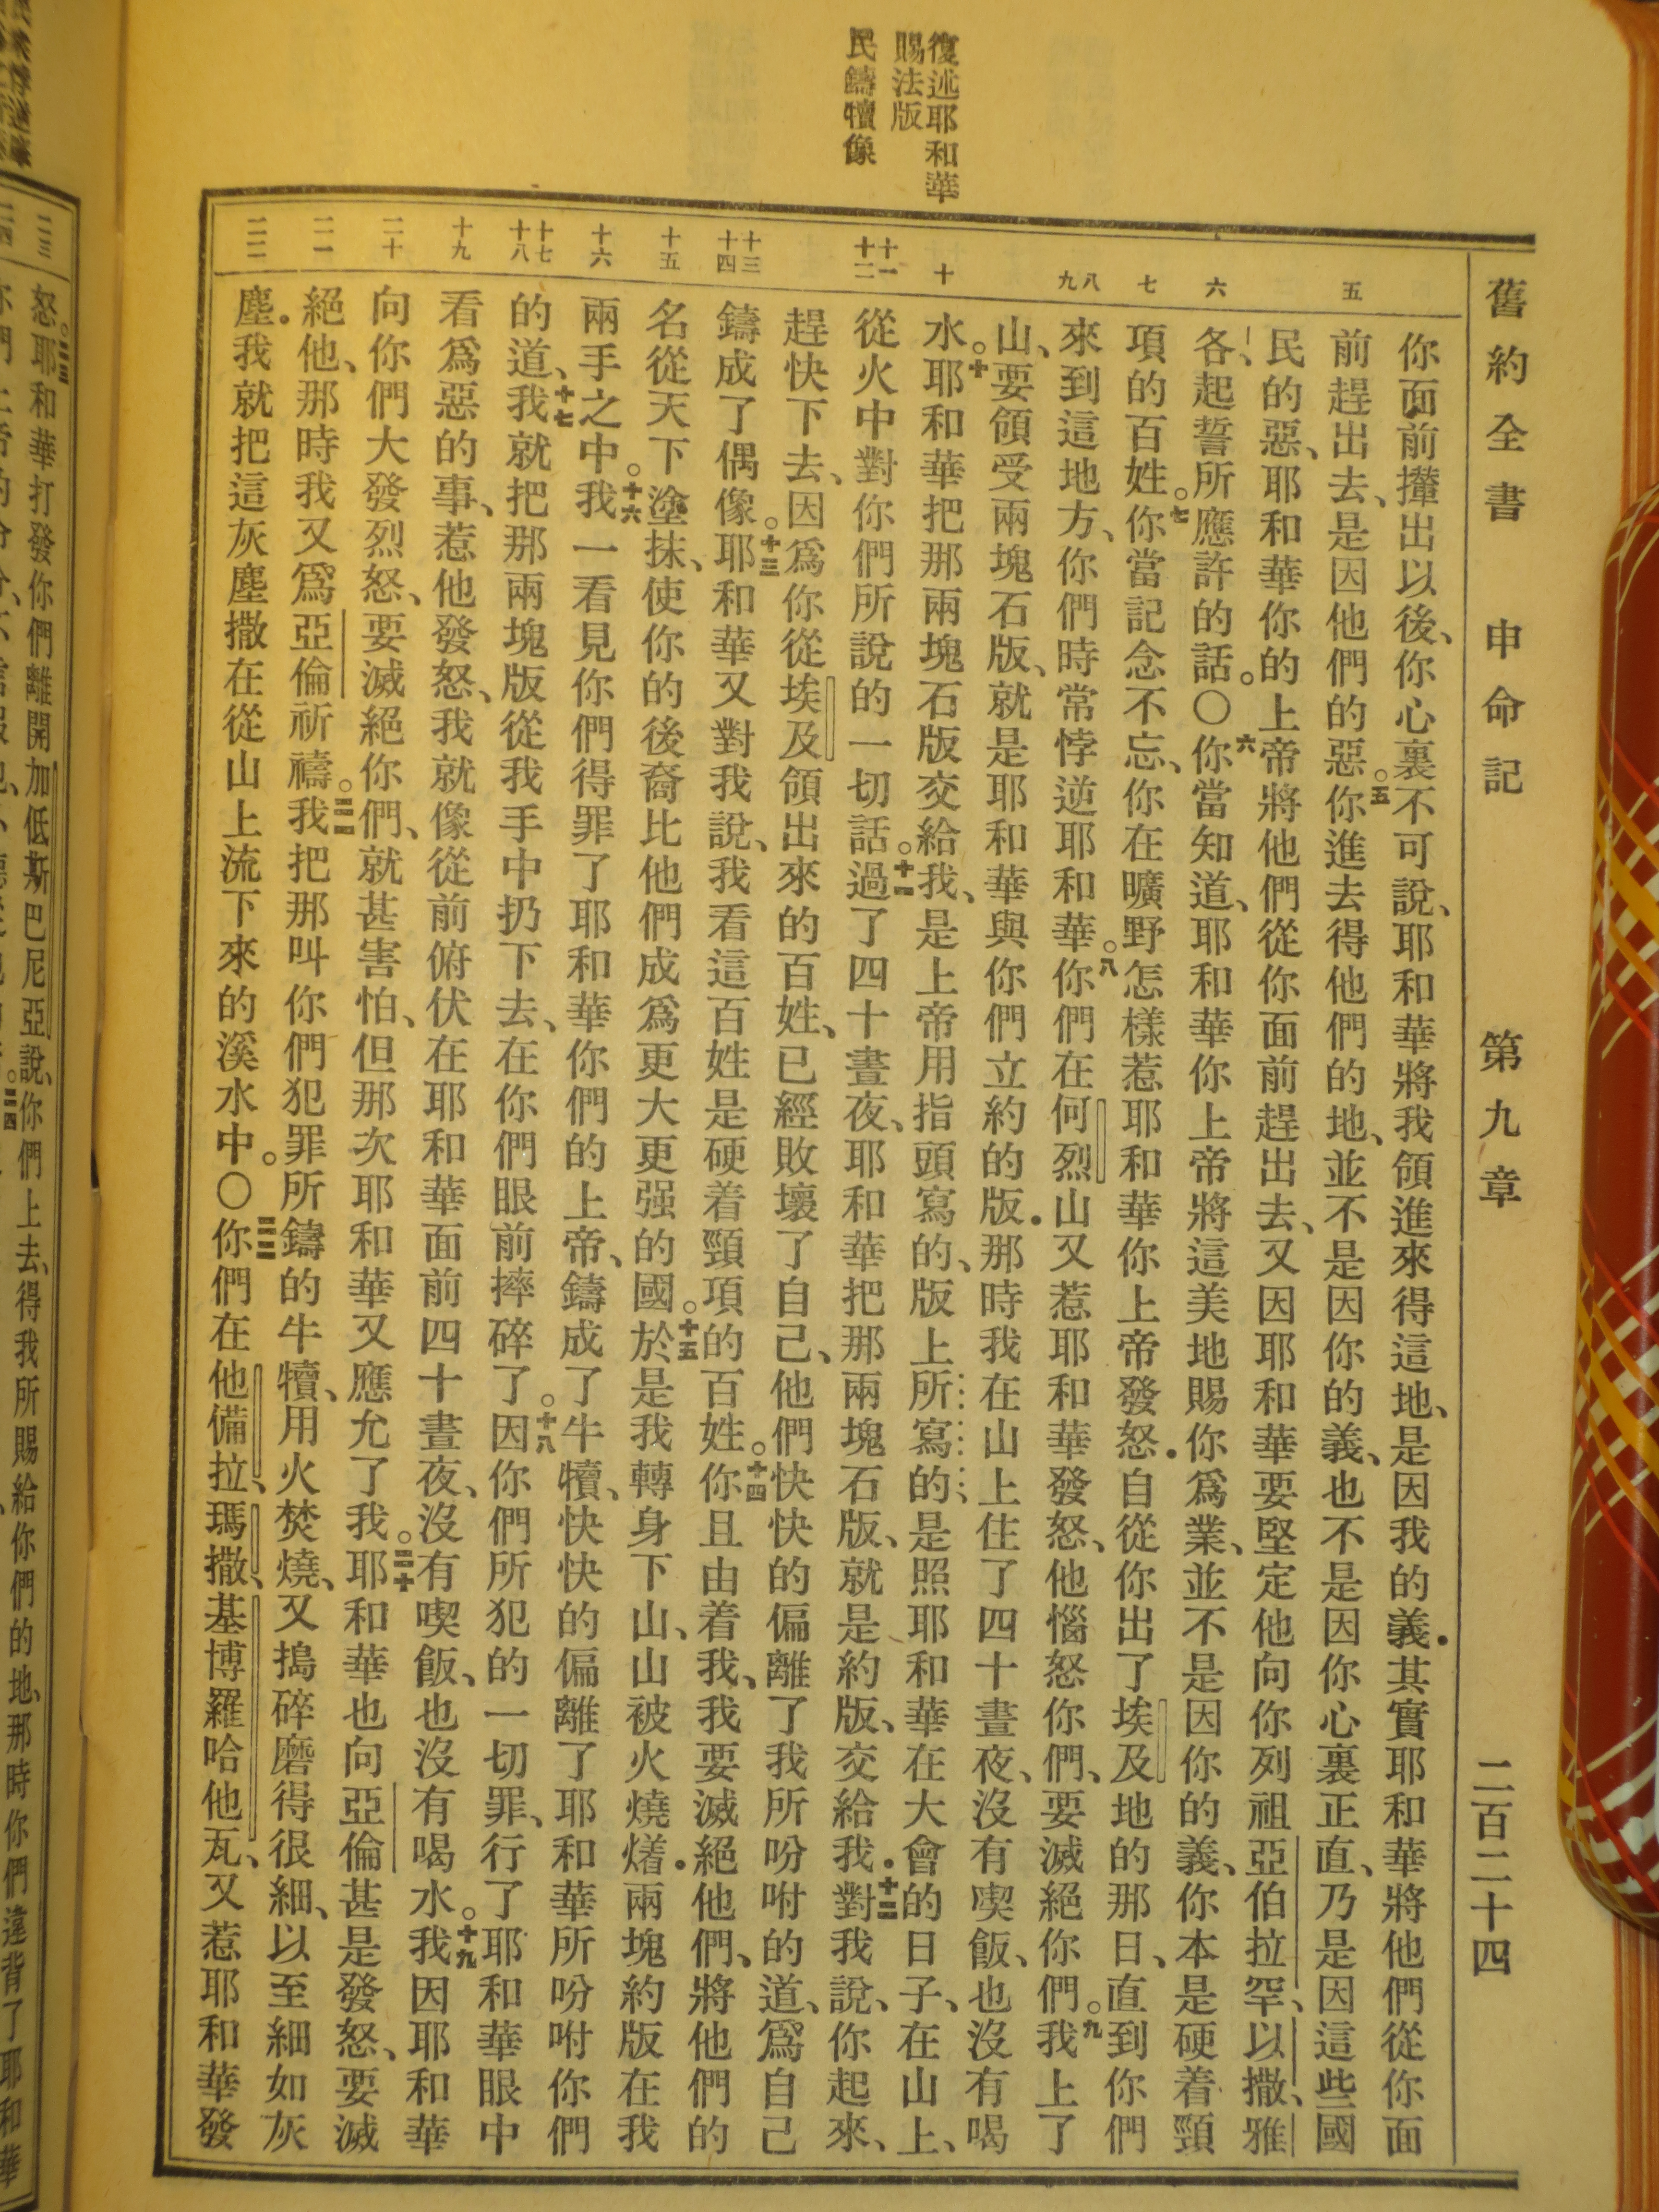 舊約全書　申命記　第九章　二百二十四
復述耶和華
賜法版
民鑄犢像
五
六
七
八
九
十
十一
十二
十三
十四
十五
十六
十七
十八
十九
二十
二一
二二
你面前攆出以後、你心裏不可說、耶和華將我領進來得這地、是因我的義．其實耶和華將他們從你面
前趕出去、是因他們的惡。五你進去得他們的地、並不是因你的義、也不是因你心裏正直、乃是因這些國
民的惡、耶和華你的上帝將他們從你面前趕出去、又因耶和華要堅定他向你列祖亞伯拉罕、以撒、雅
各、起誓所應許的話。〇六你當知道、耶和華你上帝將這美地賜你爲業、並不是因你的義、你本是硬着頸
項的百姓。七你當記念不忘、你在曠野怎樣惹耶和華你上帝發怒．自從你出了埃及地的那日、直到你們
來到這地方、你們時常悖逆耶和華。八你們在何烈山又惹耶和華發怒、他惱怒你們、要滅絕你們。九我上了
山、要領受兩塊石版、就是耶和華與你們立約的版．那時我在山上住了四十晝夜、沒有喫飯、也沒有喝
水。十耶和華把那兩塊石版交給我、是上帝用指頭寫的、版上所寫的、是照耶和華在大會的日子、在山上、
從火中對你們所說的一切話。十一過了四十晝夜、耶和華把那兩塊石版、就是約版、交給我．十二對我說、你起來、
趕快下去、因爲你從埃及領出來的百姓、已經敗壞了自己、他們快快的偏離了我所吩咐的道、爲自己
鑄成了偶像。十三耶和華又對我說、我看這百姓是硬着頸項的百姓。十四你且由着我、我要滅絕他們、將他們的
名從天下塗抹、使你的後裔比他們成爲更大更强的國。十五於是我轉身下山、山被火燒㸃．兩塊約版在我
兩手之中。十六我一看見你們得罪了耶和華你們的上帝、鑄成了牛犢、快快的偏離了耶和華所吩咐你們
的道、十七我就把那兩塊版從我手中扔下去、在你們眼前摔碎了。十八因你們所犯的一切罪、行了耶和華眼中
看爲惡的事、惹他發怒、我就像從前俯伏在耶和華面前四十晝夜、沒有喫飯、也沒有喝水。十九我因耶和華
向你們大發烈怒、要滅絕你們、就甚害怕、但那次耶和華又應允了我。二十耶和華也向亞倫甚是發怒、要滅
絕他、那時我又爲亞倫祈禱。二一我把那叫你們犯罪所鑄的牛犢、用火焚燒、又搗碎磨得很細、以至細如灰
塵．我就把這灰塵撒在從山上流下來的溪水中。〇二二你們在他備拉、瑪撒、基博羅哈他瓦、又惹耶和華發
二三
怒。二三耶和華打發你們離開加低斯巴尼亞、說、你們上去、得我所賜給你們的地、那時你們違背了耶和華